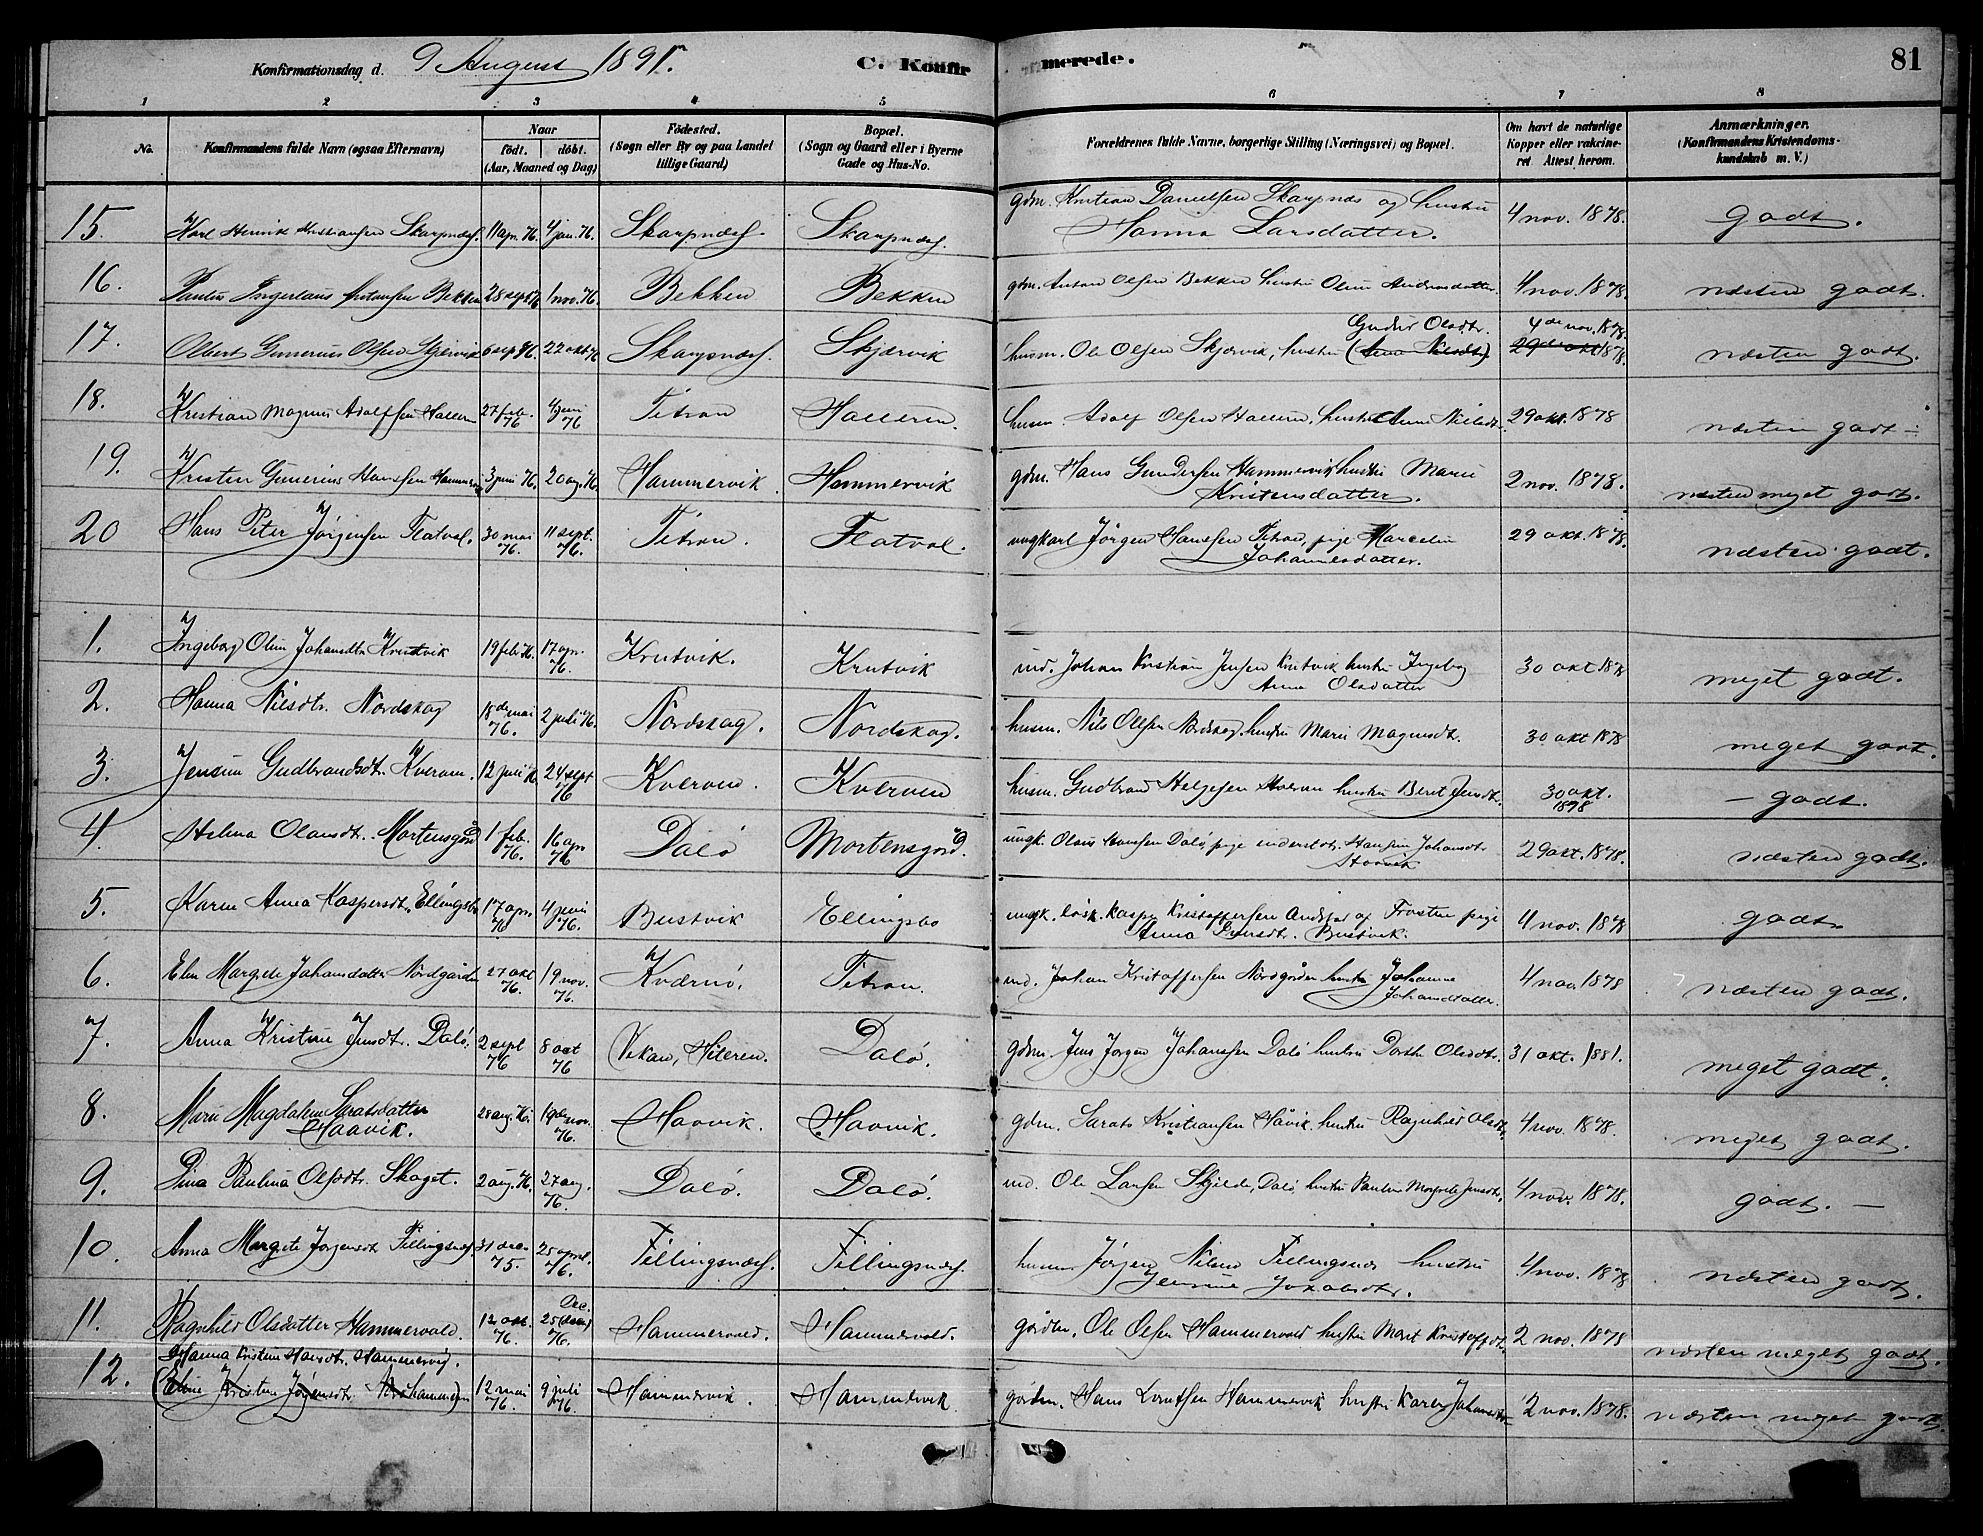 Konfirmationsdag d. 9 August 1891.
C. Konfirmerede.
81
1 2 3 4 5 6 7 8
No.
Konfirmandens fulde Navn (ogsaa Efternavn)
Naar
født. døbt.
(Aar, Maaned og Dag)
Fødested.
(Sogn eller By og paa Landet
tillige Gaard)
Bopæl.
(Sogn og Gaard eller i Byerne
Gade og Hus-No.
Forældrenes fulde Navne, borgerlige Stilling (Næringsvei) og Bopæl.
Om havt de naturlige
Kopper eller vakcine-
ret. Attest herom.
Anmærkninger.
(Konfirmandens Kristendoms-
kundskab m. V.)
15. Karl Henrik Kristiansen Skarpnæs. 11 apr. 76. 4 jun. 76. Skarpnæs. Skarpnæs. gdm. Kristian Danielsen Skarpnæs og hustru
Hanna Larsdatter. 4 nov. 1878. godt.
16. Paulus Ingerlaus Antonsen Bekken 28 sept 76 1 nov. 76. Bekken Bekken gdm. Anton Olsen Bekken hustru Oline Andreasdatter. 4 nov. 1878. næsten godt.
17. Olbert Gunerius Olsen Skjervik 6 sep 76. 22 okt 76 Skarpnæs. Skjærvik husm. Ole Olsen Skjærvik, hustru (Anna Nilsdt) Gudur Olsdtr. 4de nov. 1878.
29de okt 1878. næsten godt.
18. Kristian Magnus Adolfsen Halleren 27 feb. 76 4 juni 76 Titran Halleren. husm. Adolf Olsen Halleren, hustru Anne Nilsdt. 29 okt. 1878 næsten godt
19. Kristen Gunerius Hansen Hammervik 3 juni 76. 20 aug. 76. Hammervik Hammervik gdm. Hans Gundersen Hammervik hustru Marie
Kristensdatter. 2 nov. 1878. næsten meget godt.
20 Hans Peter Jørgensen Flatval. 30 mai 76. 11 sept. 76. Titran. Flatval. ungkarl Jørgen Hansen Titran, pige Marcelie
Johannesdatter. 29 okt. 1878. næsten godt.
1. Ingeborg Oline Johansdtr Krutvik 19 feb. 76. 17 apr. 76. Krutvik. Krutvik ind. Johan Kristian Jensen Krutvik hustru Ingebog
Anna Olsdatter 30 okt 1878 meget godt.
2. Hanna Nilsdtr. Nordskag 18de mai 76. 2 juli 76. Nordskag. Nordskag. husm. Nils Olsen Nordskag, hustru Marie Magnusdt. 30 okt 1878 meget godt.
3. Jensine Gudbrandsdt. Kverven. 12 juli 76 24 sept 76 Kverven. Kverven husm. Gudbrand Helgesen Kverven hustru Beret Jensdt. 30 okt.
1878 – godt.
4. Helma Olausdt. Mortensgård 1 feb. 76. 16 apr 76 Dalø Mortensgård. ungk. Olaus Hansen Dalø pige Hansine Johansdt
29 okt. 1878. næsten godt.
5. Karen Anna Kaspersdt. Ellingsbo 17 apr. 76 4 juni 76. Bustvik Ellingsbo ungk. Kasper Kristoffersen af Frosten pige
Anna Bustvik. 4 nov. 1878 godt
6. Elen Margrete Johansdatter Nordgården 27 okt 76. 19 nov. 76. Kværnø. Titran. ind. Johan Kristoffersen Nordgården hustru Johanna
Johansdatter. 4 nov. 1878 næsten godt.
7. Anna Kristine Jensdt. Dalø. 2 sept 76 8 okt 76 Vekan, Hiteren. Dalø. gdm. Jens Jørgen Johansen Dalø hustru Dorth. Olsdtr. 31 okt. 1881. meget godt.
8. Marie Magdalene Saratsdatter
Haavik. 28 aug. 76. 19de nov. 76. Haavik. Haavik. gdm. Sarats Kristiansen Håvik, hustru Ragnhild Olsdt. 4 nov. 1878. meget godt.
9. Dina Paulina Olsdtr. Skaget. 2 aug. 76. 27 aug. 76. Dalø. Dalø. ind. Ole Larsen Skjilde, Dalø, hustru Pauline Margrete Jensdt. 4 nov. 1878. godt. –
10. Anna Margrete Jørgensdt. Fillingsnæs 31 dec. 75. 25 april. 76. Fillingsnæs. Fillingsnæs. husm. Jørgen Nilsen Fillingsnæs hustru
Jensine Jakobsdt. 4 nov. 1878 næsten godt.
11. Ragnhild Olsdatter Hammervold. 12 okt. 76. Dec.
25 76. Hammervold. Hammervold. gårdm. Ole Olsen Hammervold hustru Marit Kristoffdt. 2 nov. 1878 næsten meget godt.
12. Hanna Kristine Hansdt. Hammervig.
(Eline Kristine Jørgensdt. 12 mai 76. 9 juli 76. Hammervik. Hammervik gårdm. Hans Lorntsen Hammervik hustru Karen Johansdt. 2 nov. 1878. næsten meget godt.